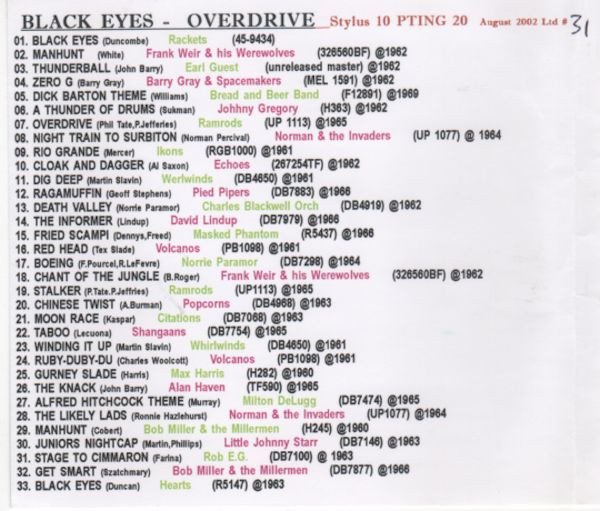 BLACK EYES - OVERDRIVE Stylus 10 PTING 20 August 2002 Ltd # 31
01. BLACK EYES (Duncombe) Rackets (45-9434)
02. MANHUNT (White) Frank Weir & his Werewolves (326560BF) @1962
03. THUNDERBALL (John Barry) Earl Guest (unreleased master) @1962
04. ZERO G (Barry Gray) Barry Gray & Spacemakers (MEL 1591) @1962
05. DICK BARTON THEME (Williams) Bread and Beer Band (F12891) @1969
06. A THUNDER OF DRUMS (Sukman) Johhny Gregory (H363) @1962
07. OVERDRIVE (Phil Tate,P.Jefferies) Ramrods (UP 1113) @1965
08. NIGHT TRAIN TO SURBITON (Norman Percival) Norman & the Invaders (UP 1077) @ 1964
09. RIO GRANDE (Mercer) Ikons (RGB1000) @1961
10. CLOAK AND DAGGER (Al Saxon) Echoes (267254TF) @1962
11. DIG DEEP (Martin Slavin) Werlwinds (DB4650) @1961
12. RAGAMUFFIN (Geoff Stephens) Pied Pipers (DB7883) @1966
13. DEATH VALLEY (Norrie Paramor) Charles Blackwell Orch (DB4919) @1962
14. THE INFORMER (Lindup) David Lindup (DB7979) @1966
15. FRIED SCAMPI (Dennys,Freed) Masked Phantom (R5437) @1966
16. RED HEAD (Tex Slade) Volcanos (PB1098) @1961
17. BOEING (F.Pourcel,R.LeFevre) Norrie Paramor (DB7298) @1964
18. CHANT OF THE JUNGLE (B.Roger) Frank Weir & his Werewolves (326560BF) @1962
19. STALKER (P.Tate.P.Jeffries) Ramrods (UP1113) @1965
20. CHINESE TWIST (A.Burman) Popcorns (DB4968) @1963
21. MOON RACE (Kaspar) Citations (DB7068) @1963
22. TABOO (Lecuona) Shangaans (DB7754) @1965
23. WINDING IT UP (Martin Slavin) Whirlwinds (DB4650) @1961
24. RUBY-DUBY-DU (Charles Woolcott) Volcanos (PB1098) @1961
25. GURNEY SLADE (Harris) Max Harris (H282) @1960
26. THE KNACK (John Barry) Alan Haven (TF590) @1965
27. ALFRED HITCHCOCK THEME (Murray) Milton DeLugg (DB7474) @1965)
28. THE LIKELY LADS (Ronnie Hazlehurst) Norman & the Invaders (UP1077) @1964
29. MANHUNT (Cobert) Bob Miller & the Millermen (H245) @1960
30. JUNIORS NIGHTCAP (Martin,Phillips) Little Johnny Starr (DB7146) @1963
31. STAGE TO CIMMARON (Farina) Rob E.G. (DB7100) @ 1963
32. GET SMART (Szatchmary) Bob Miller & the Millermen (DB7877) @1966
33. BLACK EYES (Duncan) Hearts (R5147) @1963